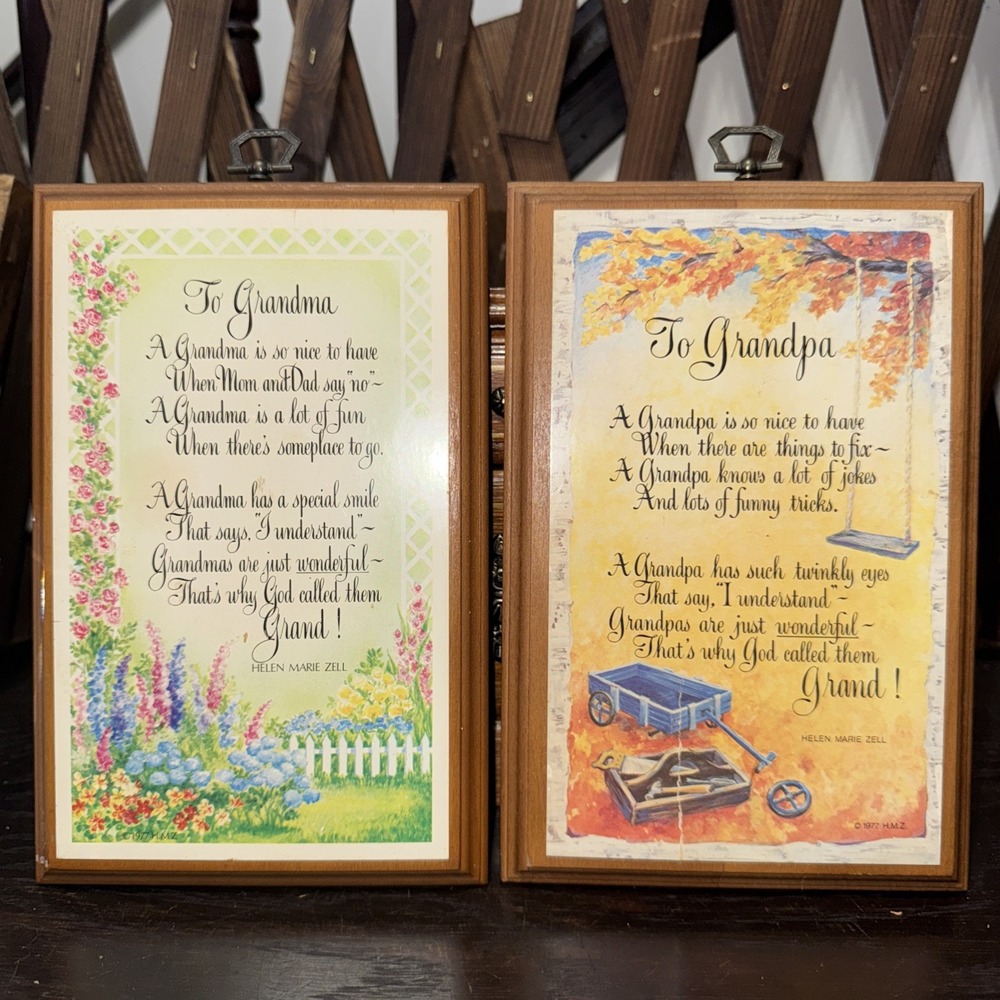 To Grandma
A Grandma is so nice to have
When Mom and Dad say "no"~
A Grandma is a lot of fun
When there's someplace to go.
A Grandma has a special smile
That says, "I understand"~
Grandmas are just wonderful~
That's why God called them
Grand!
HELEN MARIE ZELL
©1977 H.M.Z.
To Grandpa
A Grandpa is so nice to have
When there are things to fix~
A Grandpa knows a lot of jokes
And lots of funny tricks.
A Grandpa has such twinkly eyes
That say, "I understand"~
Grandpas are just wonderful~
That's why God called them
Grand!
HELEN MARIE ZELL
© 1977 H.M.Z.